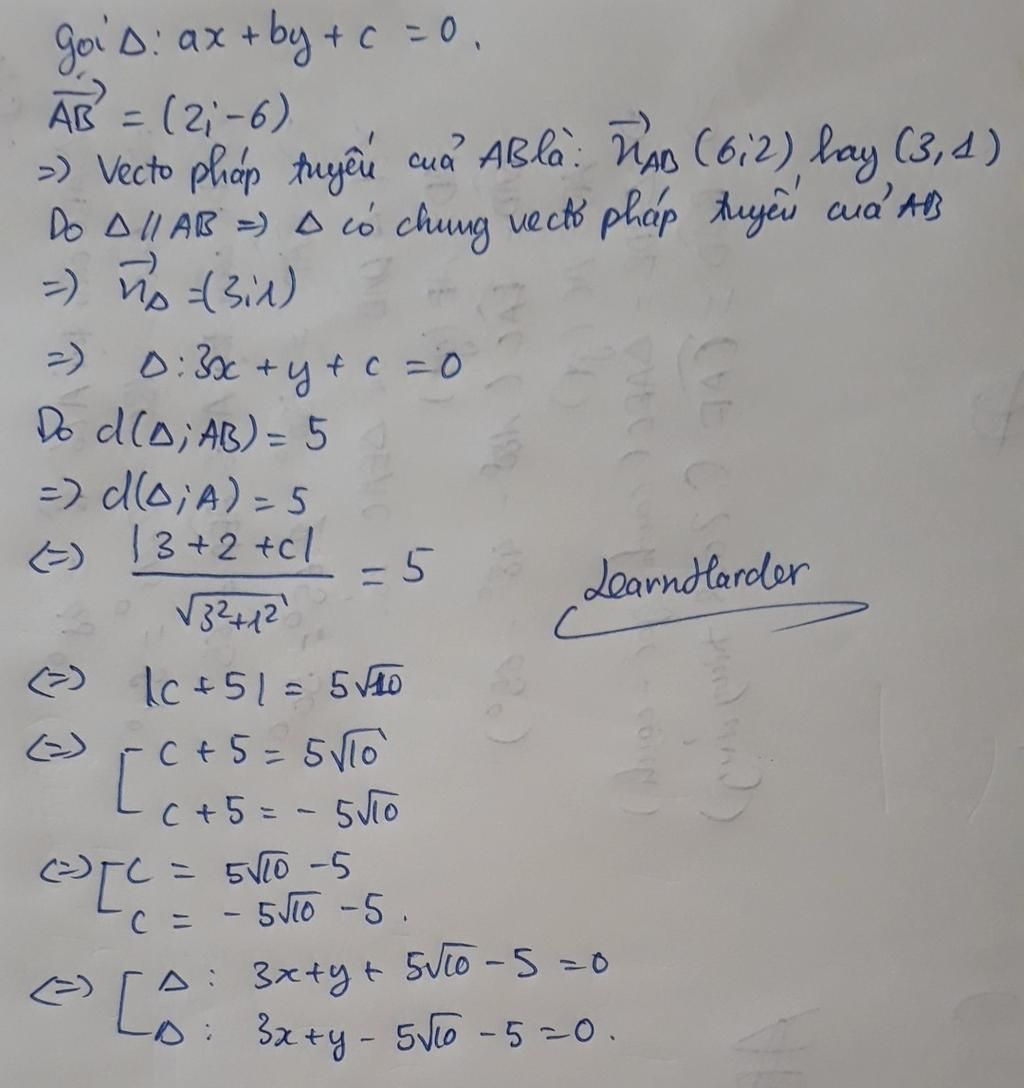 gọi Δ: ax + by + c = 0.
$\overrightarrow{AB}$ = (2; -6)
=> Vecto pháp tuyến của AB là: $\overrightarrow{n}_{AB}$ (6;2) hay (3,1)
Do Δ // AB => Δ có chung vectơ pháp tuyến của AB
=> $\overrightarrow{n}_{Δ}$ = (3;1)
=> Δ: 3x + y + c = 0
Do d(Δ; AB) = 5
=> d(Δ; A) = 5
<=> $\frac{|3 + 2 + c|}{\sqrt{3^2+1^2}}$ = 5
LearnHarder
<=> |c + 5| = 5√10
<=> [ c + 5 = 5√10
c + 5 = - 5√10
<=> [ c = 5√10 - 5
c = - 5√10 - 5.
<=> [ Δ: 3x + y + 5√10 - 5 = 0
Δ: 3x + y - 5√10 - 5 = 0.